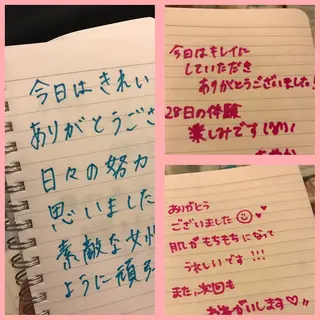 今日はきれい
ありがとうござ
日々の努力
思いました
素敵な女性
ように頑張
今日はキレイに
していただき
ありがとうございました!
28日の体験
楽しみです
ありがとう
ございました
肌がもちもちになって
うれしいです!!!
また、次回も
お願いします